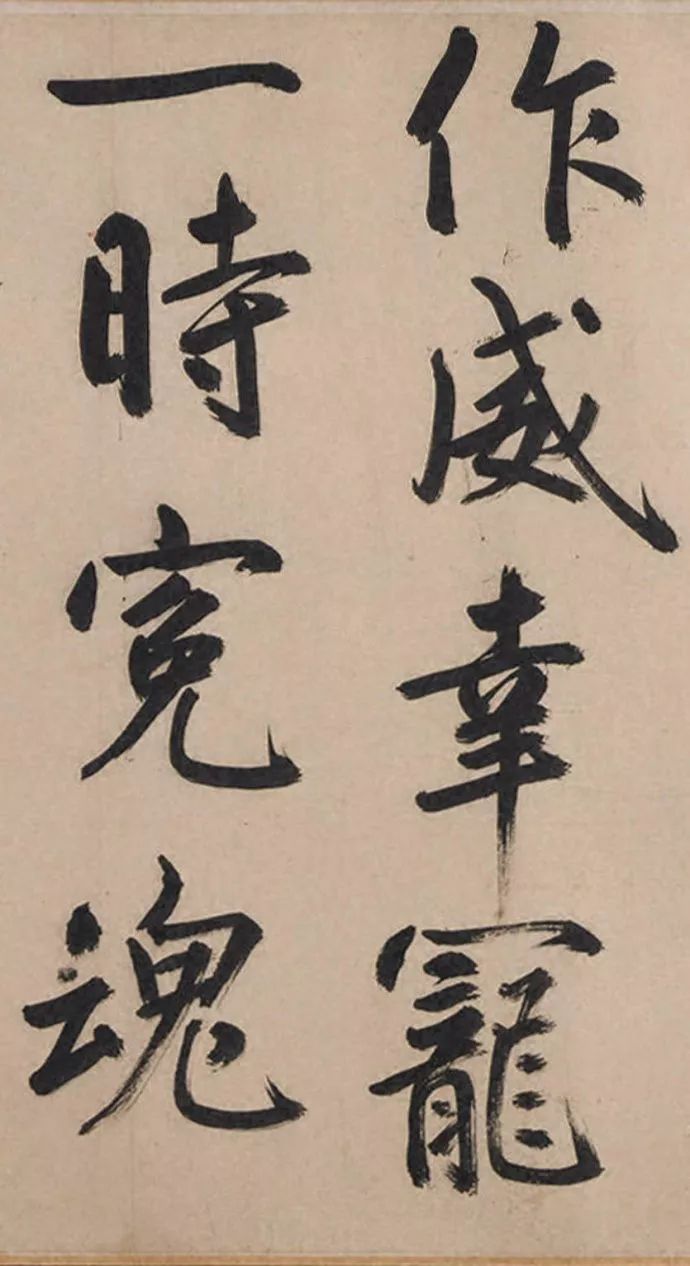 作威幸寵
一時寃魂